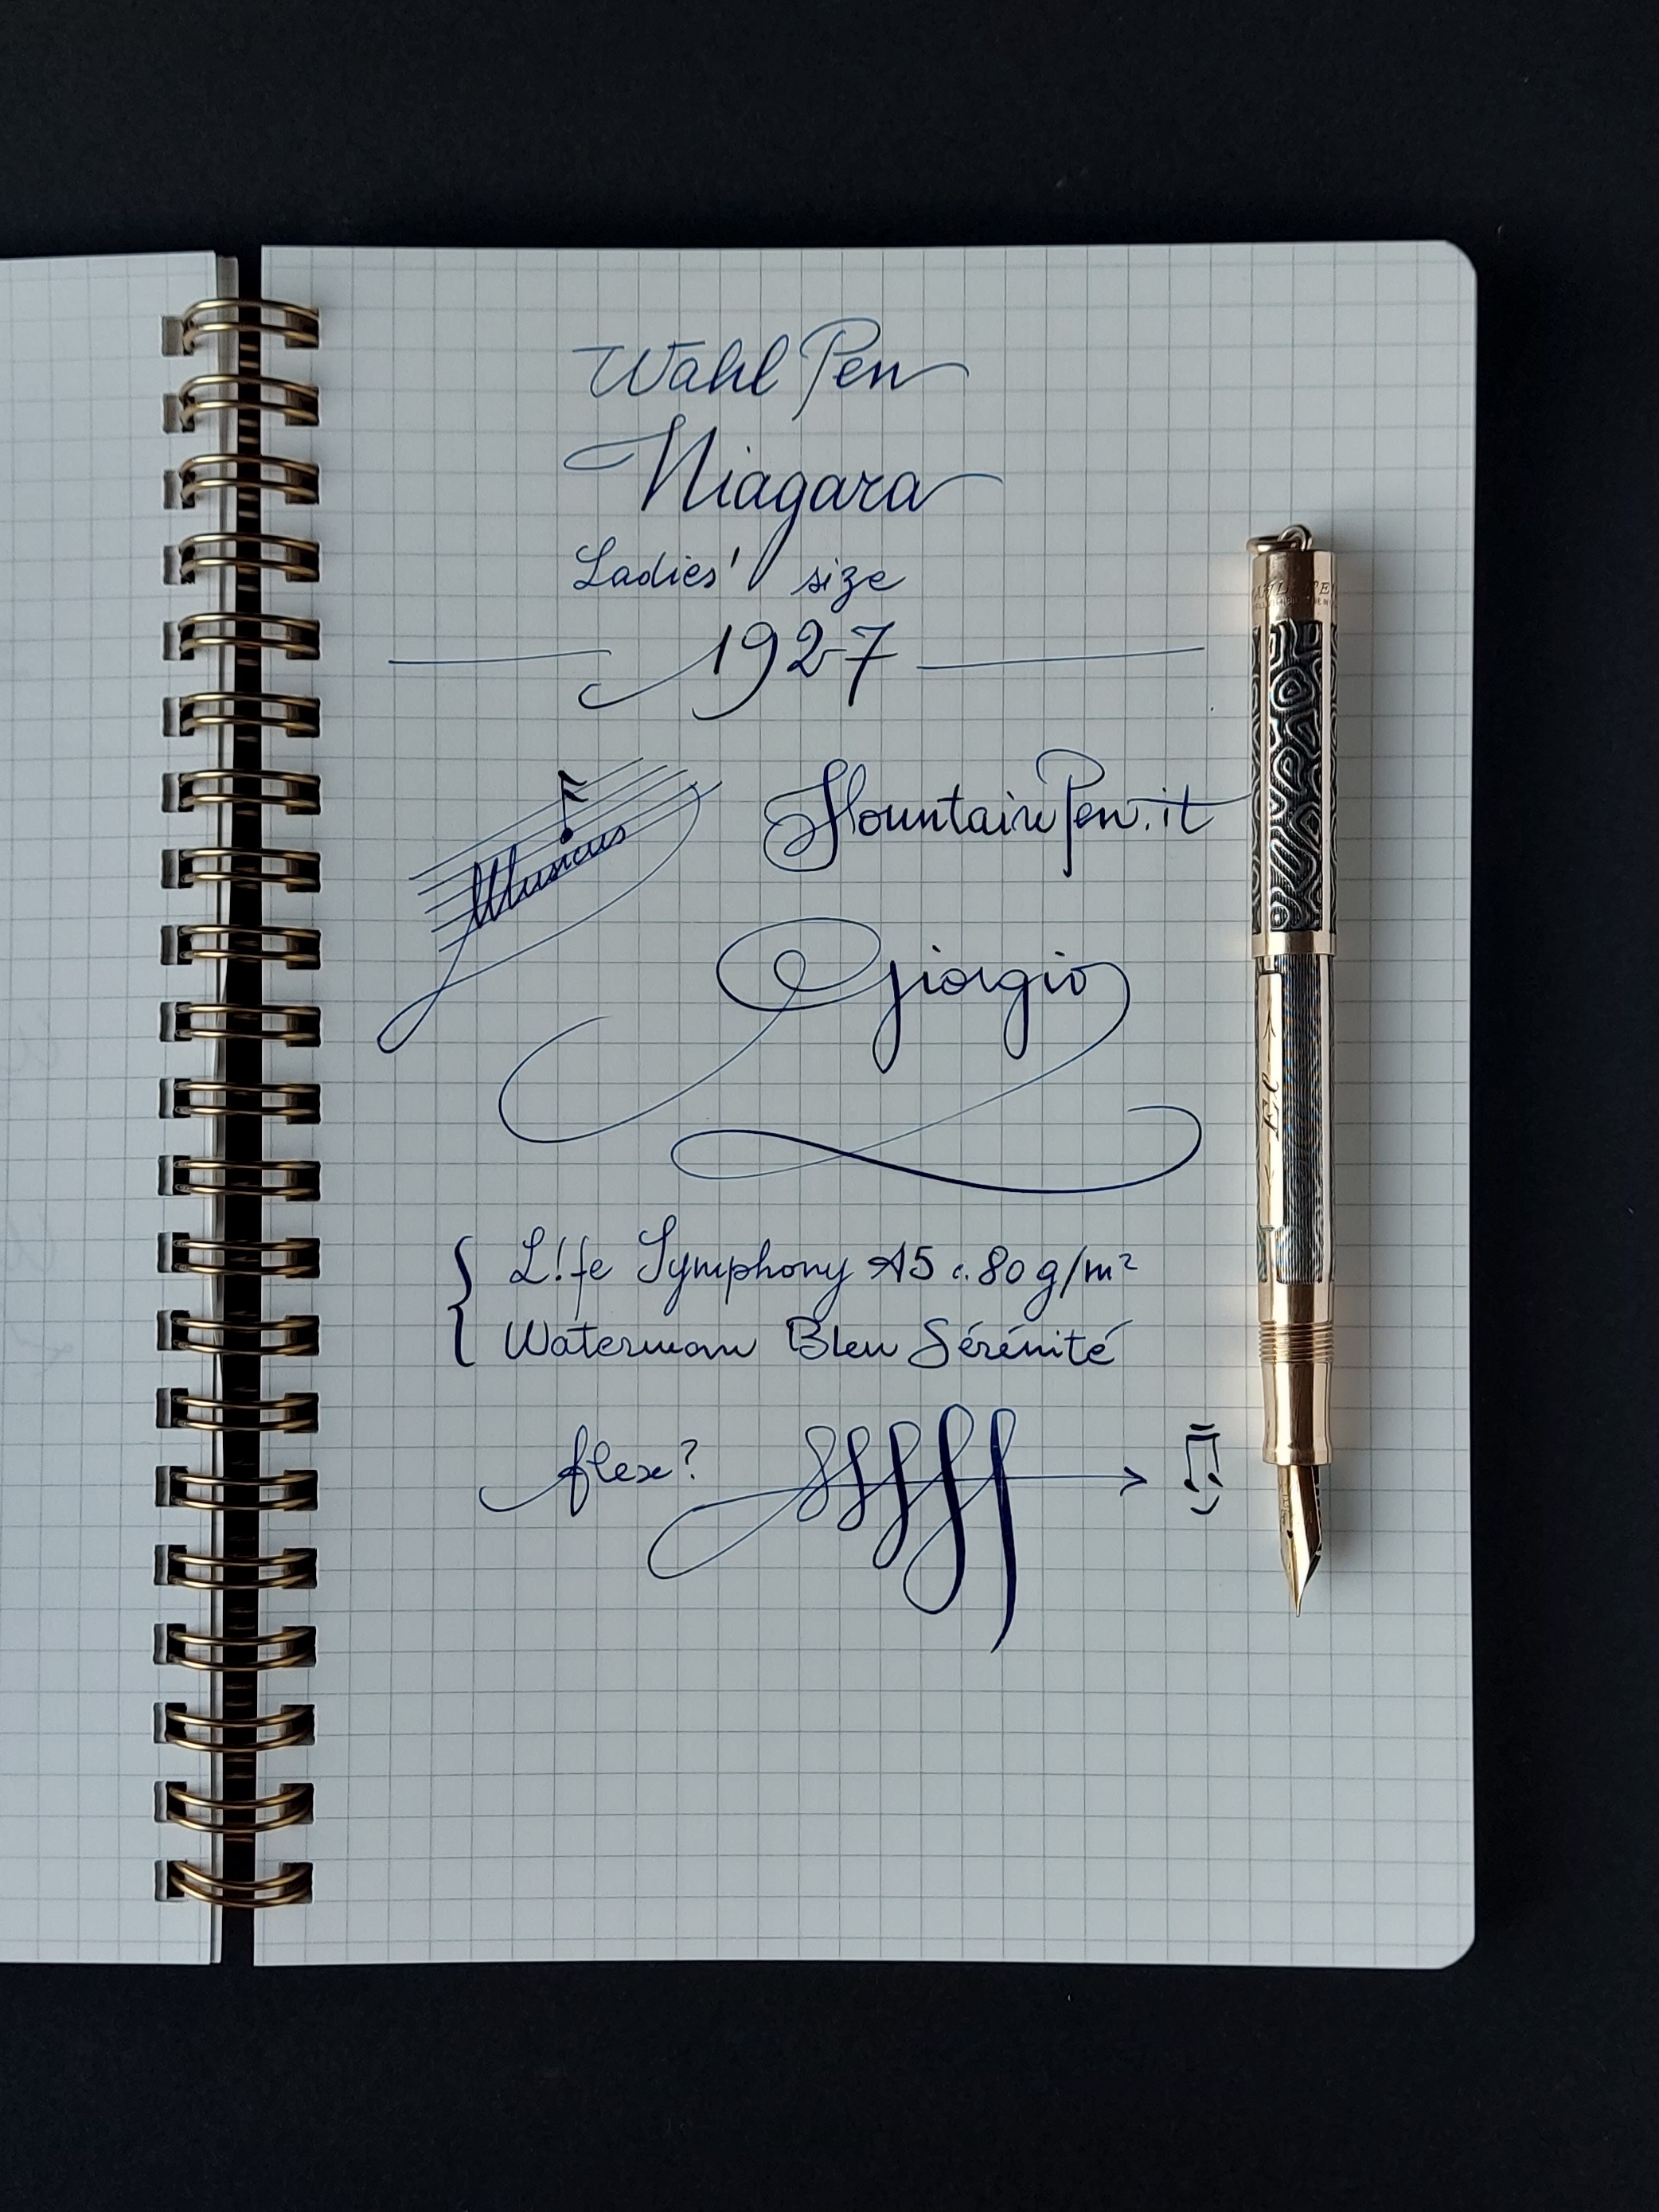 Wahl Pen
Niagara
Ladies' size
1927
Musicus
FountainPen.it
Giorgio
L!fe Symphony A5 c. 80 g/m²
Waterman Bleu Sérénité
flex? fffff
El